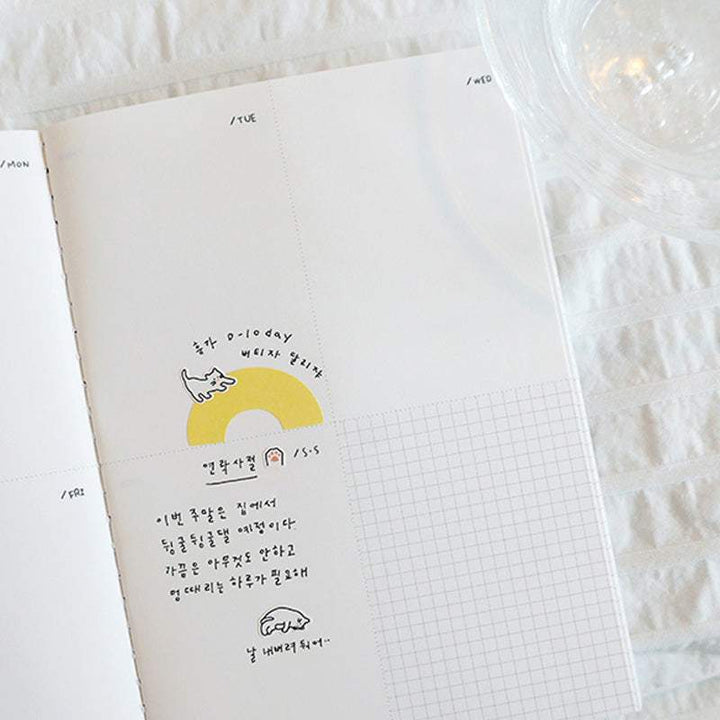 /MON
/TUE
/WED
휴가 D-10day
버티자 알리쟈
/FRI
연락사절
/S·S
이번 주말은 집에서
뒹굴뒹굴댈 예정이다
가끔은 아무것도 안하고
멍때리는 하루가 필요해
날 내버려 둬어..